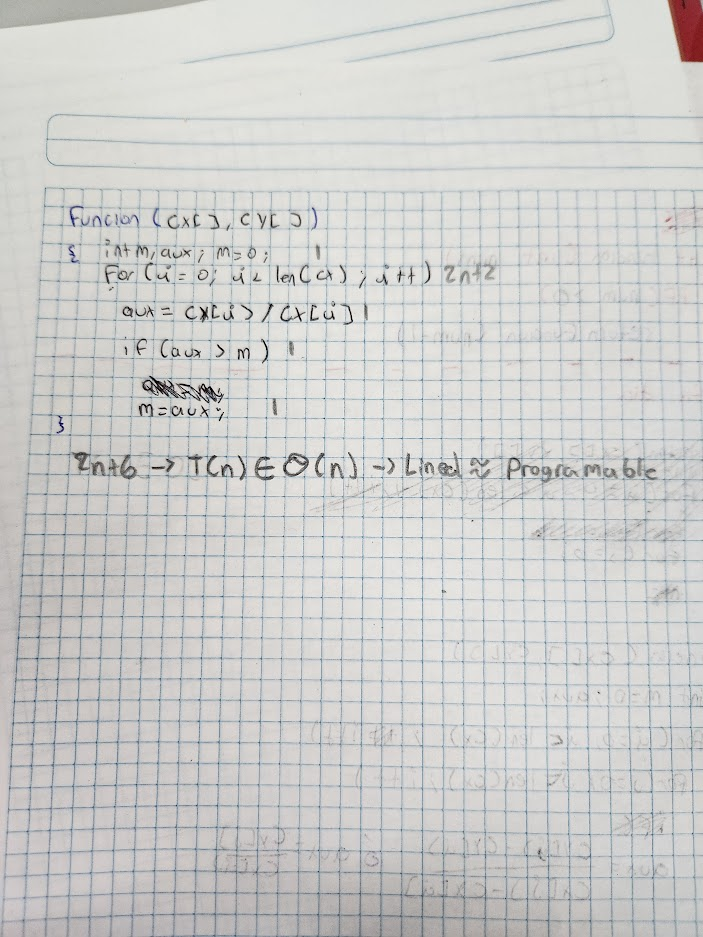 Funcion (CX[], CY[])
{ int m, aux; m=0; 1
For (i=0; i< len(cx); i++) 2n+2
aux = CY[i]/CX[i] 1
if (aux > m) 1
m=aux; 1
}
2n+6 → T(n) ∈ Θ(n) → Lineal ≈ Programable